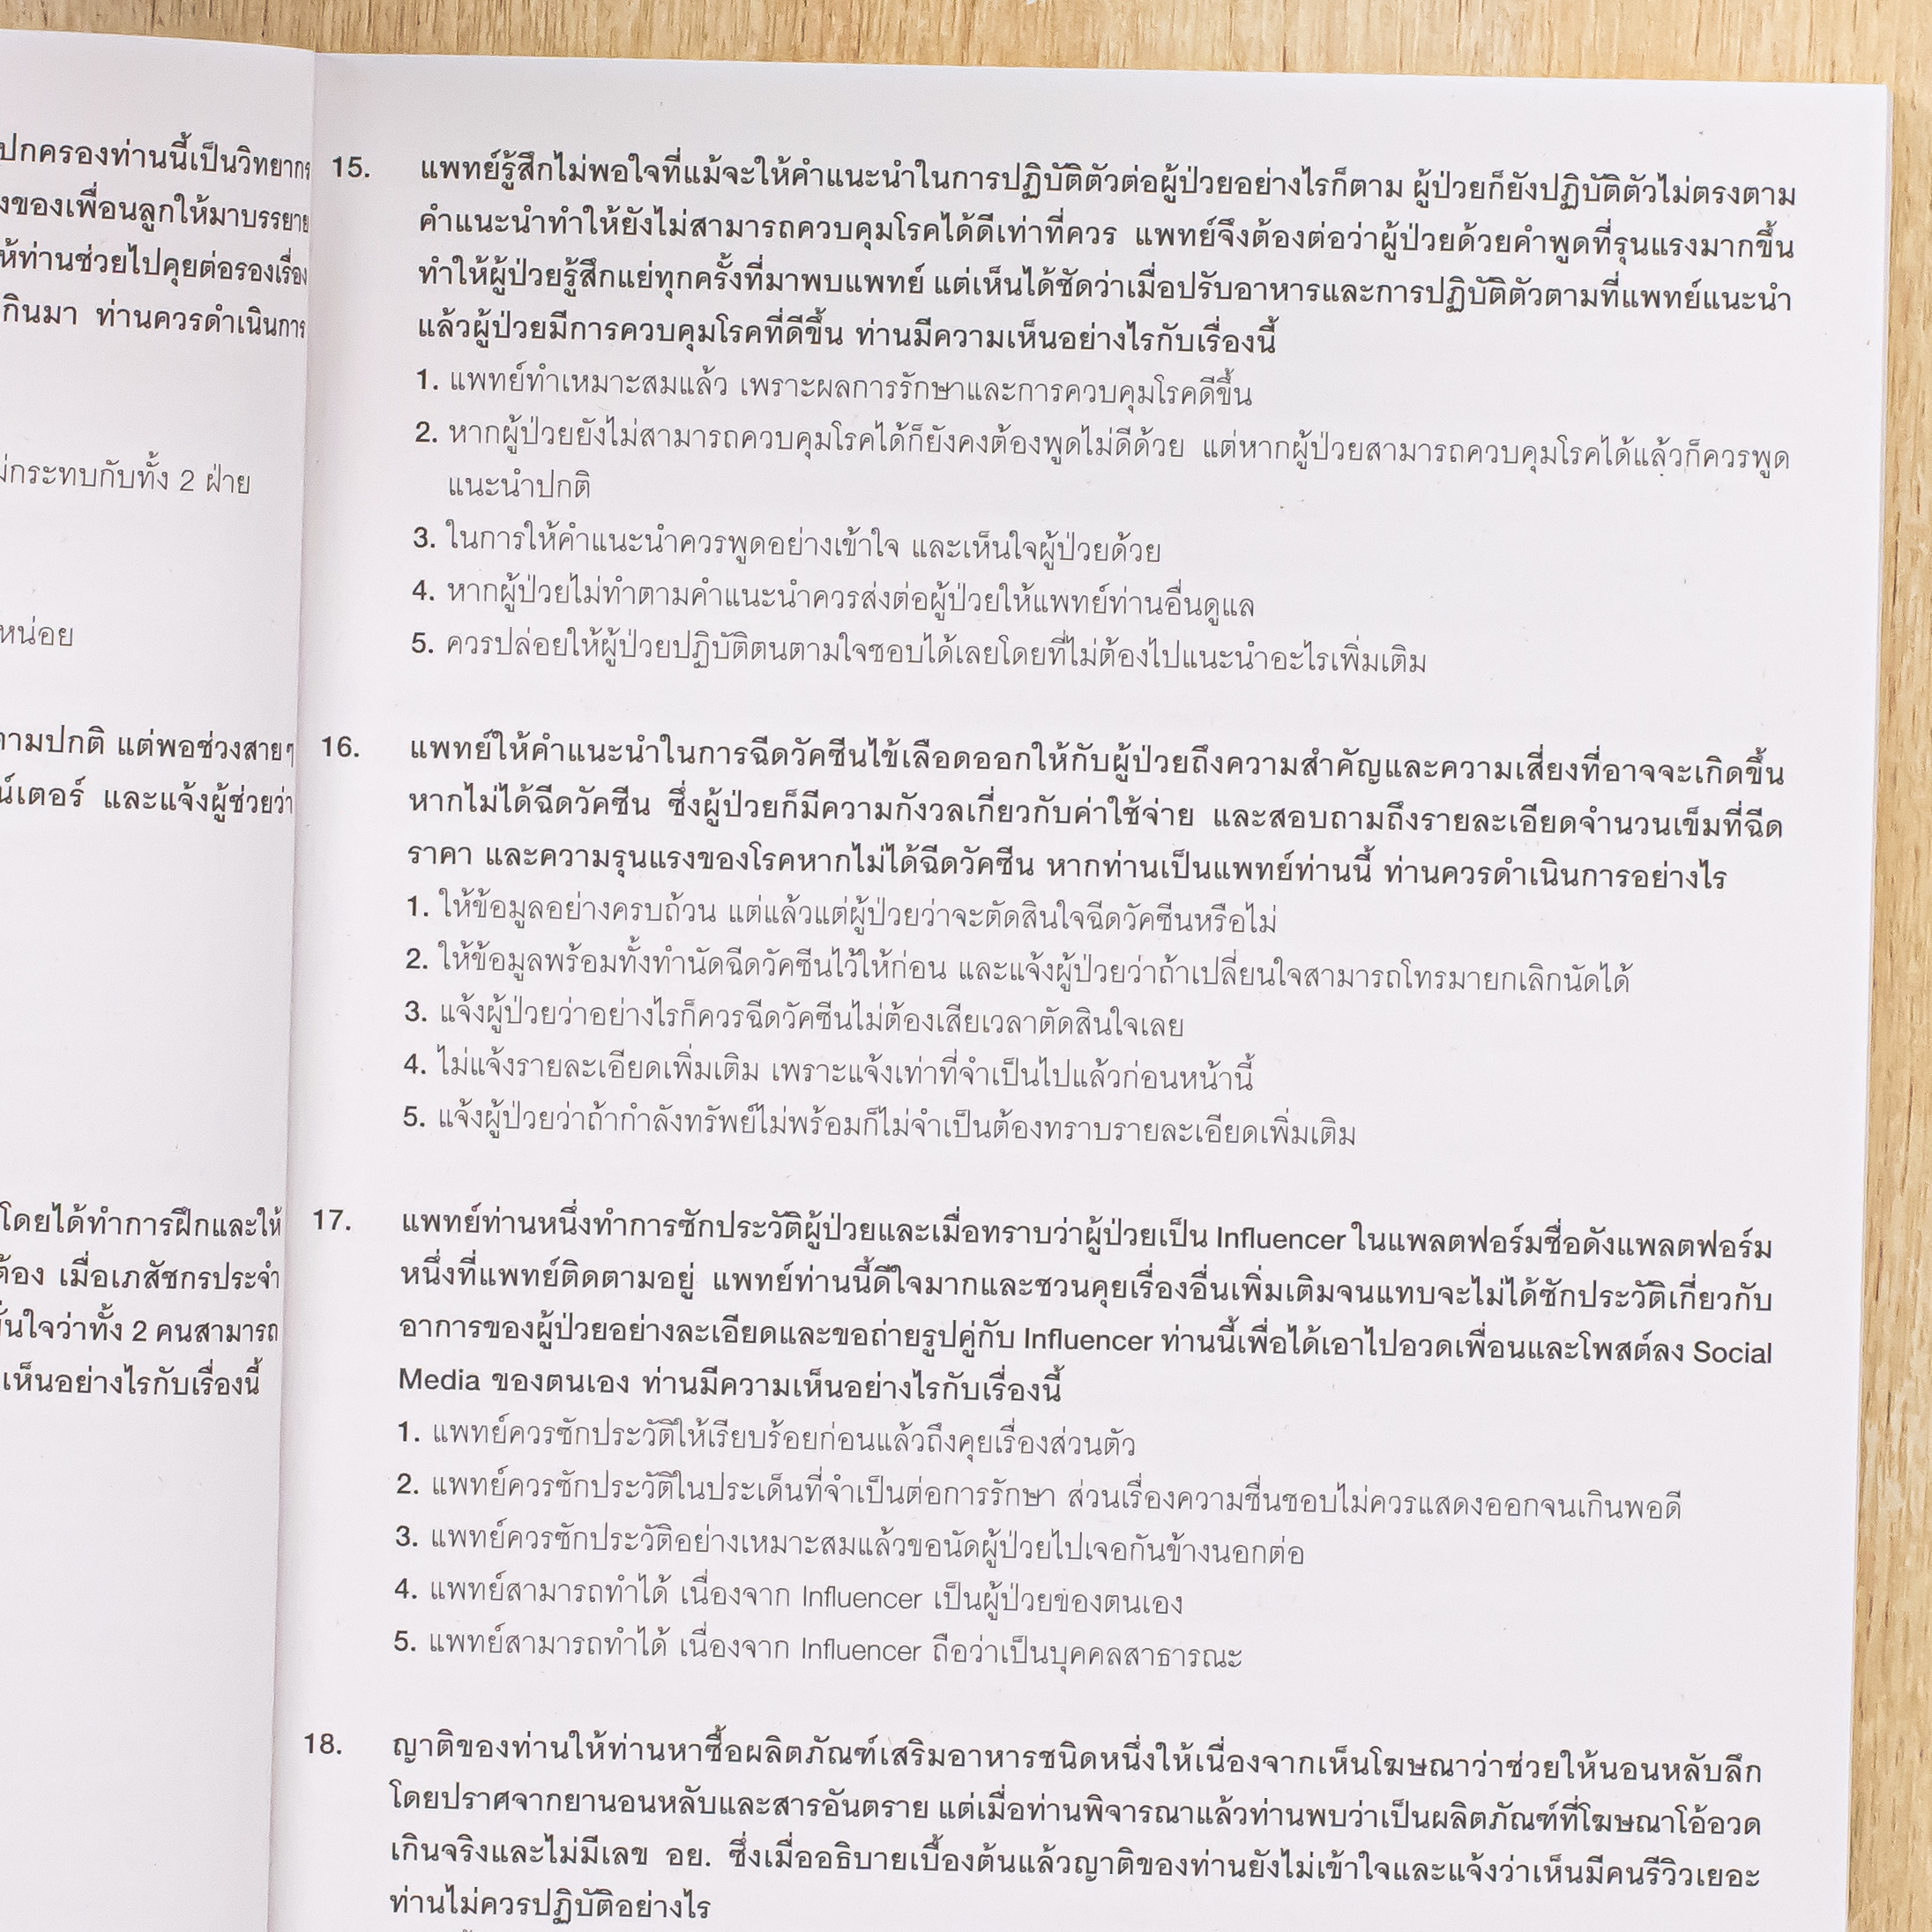 ปกครองท่านนี้เป็นวิทยากร
งของเพื่อนลูกให้มาบรรยาย
ห้ท่านช่วยไปคุยต่อรองเรื่อง
กินมา ท่านควรดำเนินการ
ม่กระทบกับทั้ง 2 ฝ่าย
หน่อย
ตามปกติ แต่พอช่วงสายๆ
น์เตอร์ และแจ้งผู้ช่วยว่า
โดยได้ทำการฝึกและให้
ต้อง เมื่อเภสัชกรประจำ
ั่นใจว่าทั้ง 2 คนสามารถ
เห็นอย่างไรกับเรื่องนี้
15. แพทย์รู้สึกไม่พอใจที่แม้จะให้คำแนะนำในการปฏิบัติตัวต่อผู้ป่วยอย่างไรก็ตาม ผู้ป่วยก็ยังปฏิบัติตัวไม่ตรงตาม
คำแนะนำทำให้ยังไม่สามารถควบคุมโรคได้ดีเท่าที่ควร แพทย์จึงต้องต่อว่าผู้ป่วยด้วยคำพูดที่รุนแรงมากขึ้น
ทำให้ผู้ป่วยรู้สึกแย่ทุกครั้งที่มาพบแพทย์ แต่เห็นได้ชัดว่าเมื่อปรับอาหารและการปฏิบัติตัวตามที่แพทย์แนะนำ
แล้วผู้ป่วยมีการควบคุมโรคที่ดีขึ้น ท่านมีความเห็นอย่างไรกับเรื่องนี้
1. แพทย์ทำเหมาะสมแล้ว เพราะผลการรักษาและการควบคุมโรคดีขึ้น
2. หากผู้ป่วยยังไม่สามารถควบคุมโรคได้ก็ยังคงต้องพูดไม่ดีด้วย แต่หากผู้ป่วยสามารถควบคุมโรคได้แล้วก็ควรพูด
แนะนำปกติ
3. ในการให้คำแนะนำควรพูดอย่างเข้าใจ และเห็นใจผู้ป่วยด้วย
4. หากผู้ป่วยไม่ทำตามคำแนะนำควรส่งต่อผู้ป่วยให้แพทย์ท่านอื่นดูแล
5. ควรปล่อยให้ผู้ป่วยปฏิบัติตนตามใจชอบได้เลยโดยที่ไม่ต้องไปแนะนำอะไรเพิ่มเติม
16. แพทย์ให้คำแนะนำในการฉีดวัคซีนไข้เลือดออกให้กับผู้ป่วยถึงความสำคัญและความเสี่ยงที่อาจจะเกิดขึ้น
หากไม่ได้ฉีดวัคซีน ซึ่งผู้ป่วยก็มีความกังวลเกี่ยวกับค่าใช้จ่าย และสอบถามถึงรายละเอียดจำนวนเข็มที่ฉีด
ราคา และความรุนแรงของโรคหากไม่ได้ฉีดวัคซีน หากท่านเป็นแพทย์ท่านนี้ ท่านควรดำเนินการอย่างไร
1. ให้ข้อมูลอย่างครบถ้วน แต่แล้วแต่ผู้ป่วยว่าจะตัดสินใจฉีดวัคซีนหรือไม่
2. ให้ข้อมูลพร้อมทั้งทำนัดฉีดวัคซีนไว้ให้ก่อน และแจ้งผู้ป่วยว่าถ้าเปลี่ยนใจสามารถโทรมายกเลิกนัดได้
3. แจ้งผู้ป่วยว่าอย่างไรก็ควรฉีดวัคซีนไม่ต้องเสียเวลาตัดสินใจเลย
4. ไม่แจ้งรายละเอียดเพิ่มเติม เพราะแจ้งเท่าที่จำเป็นไปแล้วก่อนหน้านี้
5. แจ้งผู้ป่วยว่าถ้ากำลังทรัพย์ไม่พร้อมก็ไม่จำเป็นต้องทราบรายละเอียดเพิ่มเติม
17. แพทย์ท่านหนึ่งทำการซักประวัติผู้ป่วยและเมื่อทราบว่าผู้ป่วยเป็น Influencer ในแพลตฟอร์มชื่อดังแพลตฟอร์ม
หนึ่งที่แพทย์ติดตามอยู่ แพทย์ท่านนี้ดีใจมากและชวนคุยเรื่องอื่นเพิ่มเติมจนแทบจะไม่ได้ซักประวัติเกี่ยวกับ
อาการของผู้ป่วยอย่างละเอียดและขอถ่ายรูปคู่กับ Influencer ท่านนี้เพื่อได้เอาไปอวดเพื่อนและโพสต์ลง Social
Media ของตนเอง ท่านมีความเห็นอย่างไรกับเรื่องนี้
1. แพทย์ควรซักประวัติให้เรียบร้อยก่อนแล้วถึงคุยเรื่องส่วนตัว
2. แพทย์ควรซักประวัติในประเด็นที่จำเป็นต่อการรักษา ส่วนเรื่องความชื่นชอบไม่ควรแสดงออกจนเกินพอดี
3. แพทย์ควรซักประวัติอย่างเหมาะสมแล้วขอนัดผู้ป่วยไปเจอกันข้างนอกต่อ
4. แพทย์สามารถทำได้ เนื่องจาก Influencer เป็นผู้ป่วยของตนเอง
5. แพทย์สามารถทำได้ เนื่องจาก Influencer ถือว่าเป็นบุคคลสาธารณะ
18. ญาติของท่านให้ท่านหาซื้อผลิตภัณฑ์เสริมอาหารชนิดหนึ่งให้เนื่องจากเห็นโฆษณาว่าช่วยให้นอนหลับลึก
โดยปราศจากยานอนหลับและสารอันตราย แต่เมื่อท่านพิจารณาแล้วท่านพบว่าเป็นผลิตภัณฑ์ที่โฆษณาโอ้อวด
เกินจริงและไม่มีเลข อย. ซึ่งเมื่ออธิบายเบื้องต้นแล้วญาติของท่านยังไม่เข้าใจและแจ้งว่าเห็นมีคนรีวิวเยอะ
ท่านไม่ควรปฏิบัติอย่างไร